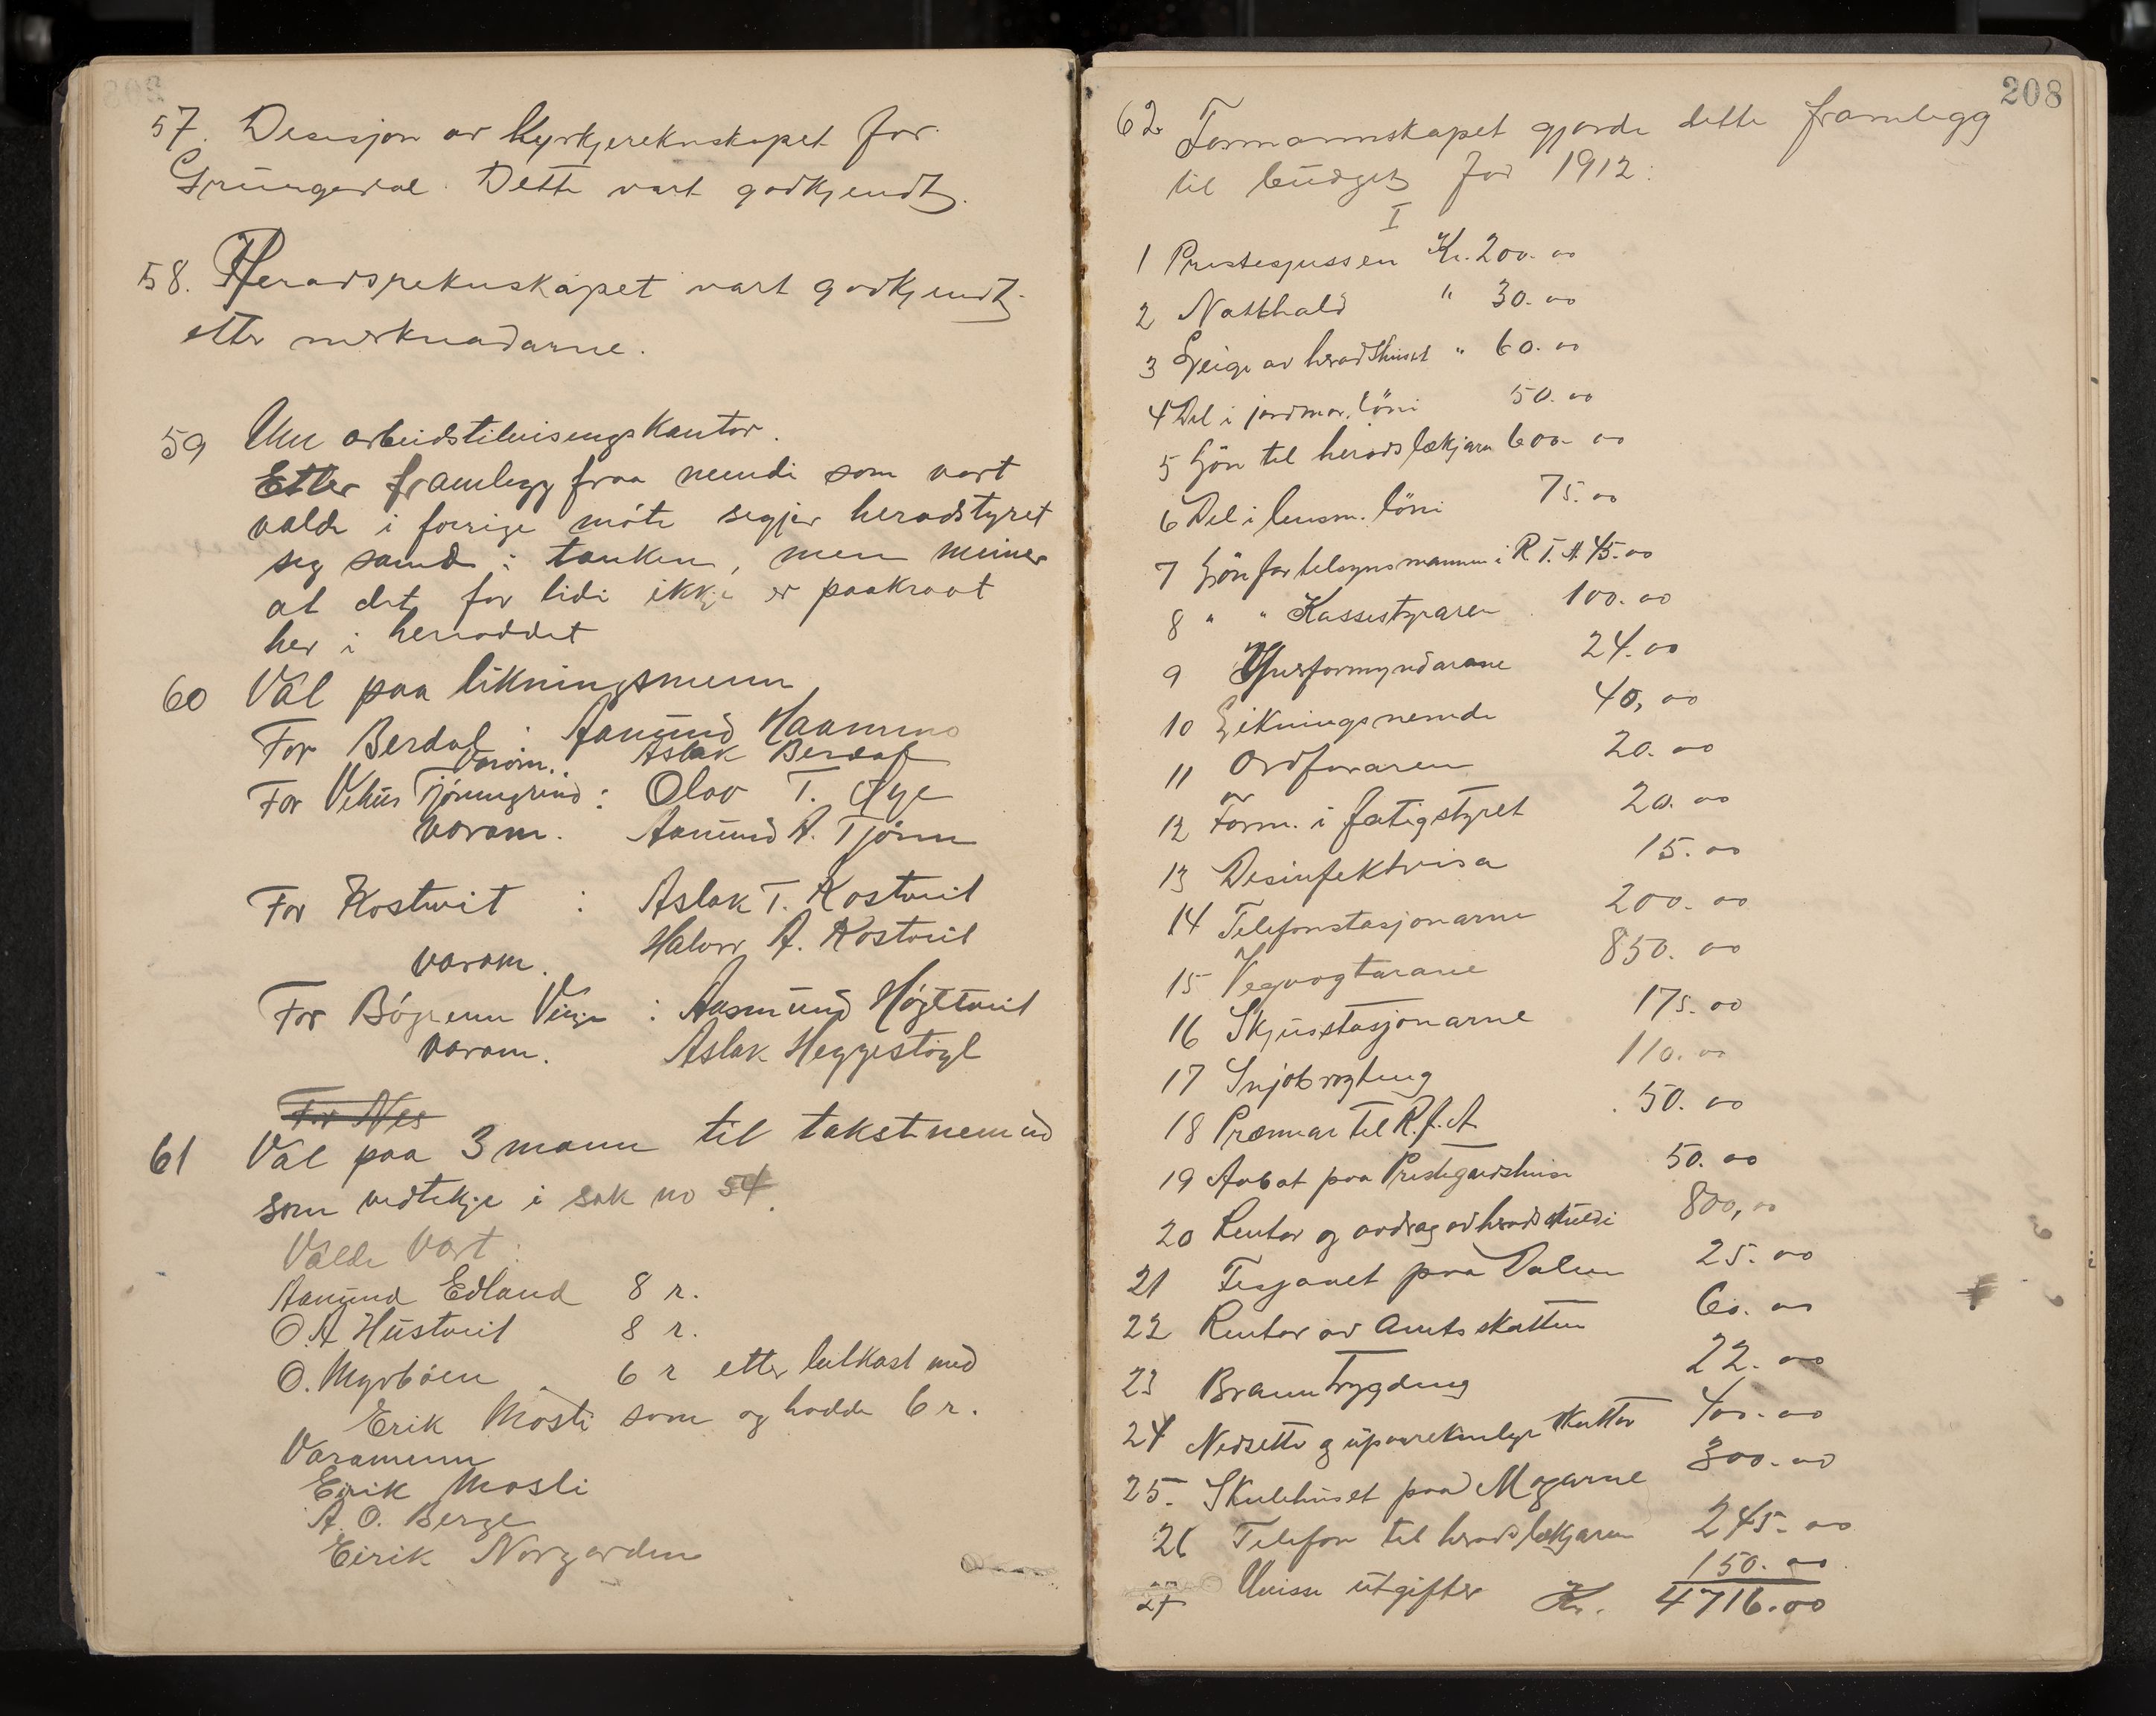 57. Desisjon av Kyrkjerekneskapet for
Grungedal. Dette vart godkjendt.
58. Heradsrekneskapet vart godkjendt
etter merknadarne.
59 Um arbeidstilvisingskantor.
Etter framlegg fraa nemdi som vart
valde i forrige möte segjer heradstyret
seg samd i tanken, men meiner
at det for tidi ikkje er paakravt
her i heraddet
60 Val paa likningsmenn
For Berdal : Aamund Haamno
Varam. : Aslak Berdal
For Vehus Tjönngrend : Olav T. Öye
Varam. Aamund A. Tjönn
For Kostveit : Aslak T. Kostveit
varam. Halvor A. Kostveit
For Bögrenn Vinje : Aasmund Högetveit
Varam. Aslak Heggestöyl
For Nes
61 Val paa 3 mann til takstnemnd
som vedtekje i sak no 54.
Valde vart :
Aamund Edland 8 r.
O. A Hustveit 8 r.
O. Myrböen 6 r etter lutkast med
Erik Mosli som og hadde 6 r.
Varamenn
Eirik Mosli
A. O. Berge
Eirik Norgarden
208
62. Formannskapet gjorde dette framlegg
til budget for 1912:
I
1 Prestegussen Kr. 200.00
2 Natthald " 30.00
3 Leige av heradshuset " 60.00
4 Del i jordmor. löni 50.00
5 Lön til heradslækjaren 600.00
6 Del i lensm. löni 75.00
7 Lön for tilsynsmannen i R. T. A. 45.00
8 " " Kassestyraren 100.00
9 Yverformyndarane 24.00
10 Likningsnemdi 40,00
11 Ordföraren 20.00
12 Form. i fatigstyret 20.00
13 Desinfektrisa 15.00
14 Telefonstasjonarne 200.00
15 Vegvogtarane 850.00
16 Skjusstasjonarne 175.00
17 Snjobrogting 110.00
18 Præmiar til R. f. A. 50.00
19 Avbot paa Prestegardshusi 50.00
20 Rentor og avdrag av heradskuldi 800,00
21 Fesjaaet paa Dalen 25.00
22 Rentor av Amtsskatten 60.00
23 Branntrygding 22.00
24 Nedsette og upaarekneleg Skattar 400.00
25. Skulehuset paa Mogarne 300.00
26 Telefon til heradslækjaren 245.00
27 Ymisse utgifter 150.00
Kr. 4716.00